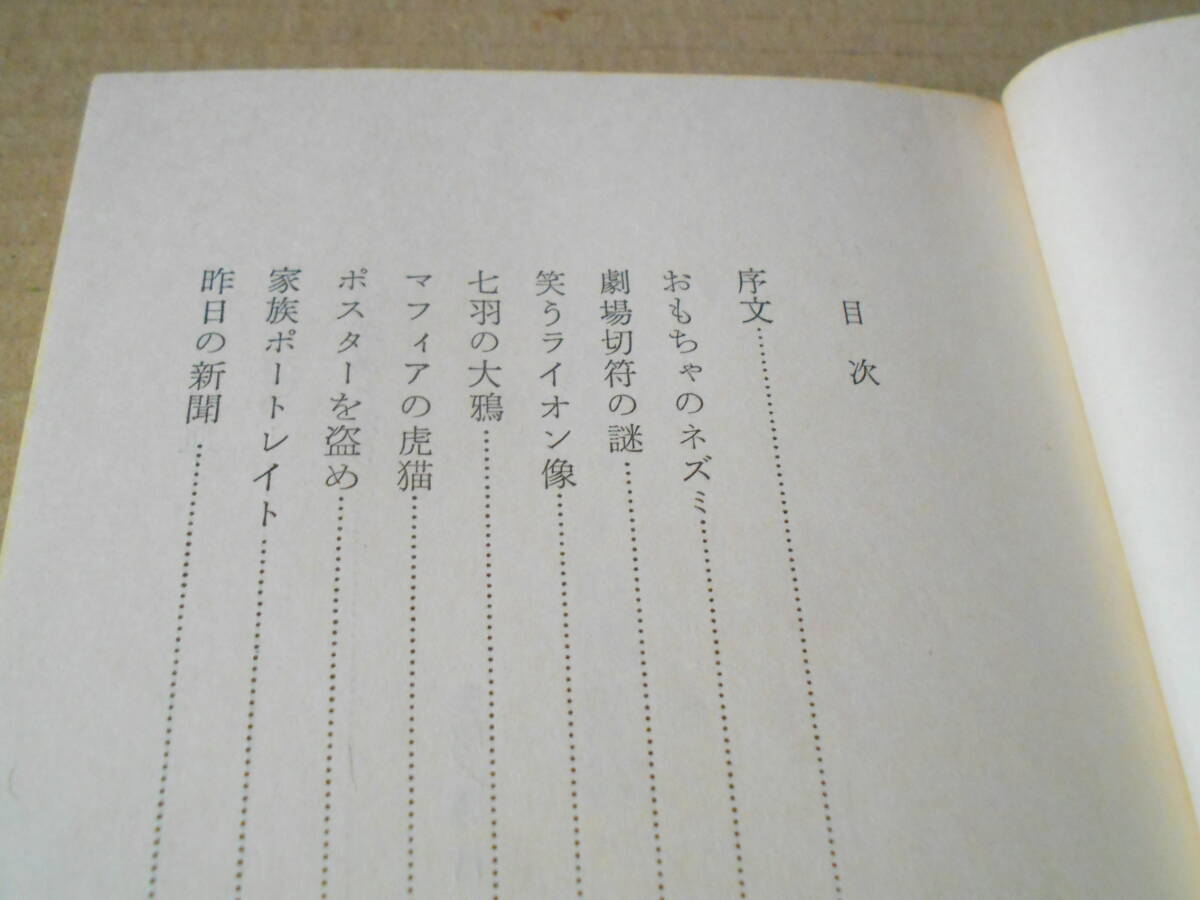 目次
序文
おもちゃのネズミ
劇場切符の謎
笑うライオン像
七羽の大鴉
マフィアの虎猫
ポスターを盗め
家族ポートレイト
昨日の新聞